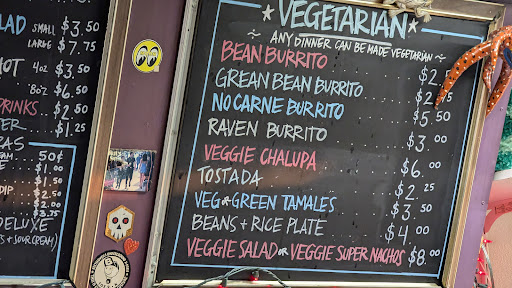 LAD SMALL $3.50
LARGE $7.75
OT 4oz $3.50
8oz $6.50
DRINKS $2.50
TER $1.25
RAS
50¢
$1.00
DIP
$3.75
DELUXE
S + SOUR CREAM)
VEGETARIAN
~ ANY DINNER CAN BE MADE VEGETARIAN ~
BEAN BURRITO $2.
GREAN BEAN BURRITO $2.
NO CARNE BURRITO $5.
RAVEN BURRITO $3.00
VEGGIE CHALUPA $6.00
TOSTADA $2.25
VEG OR GREEN TAMALES $3.50
BEANS + RICE PLATE $4.00
VEGGIE SALAD OR VEGGIE SUPER NACHOS $8.00